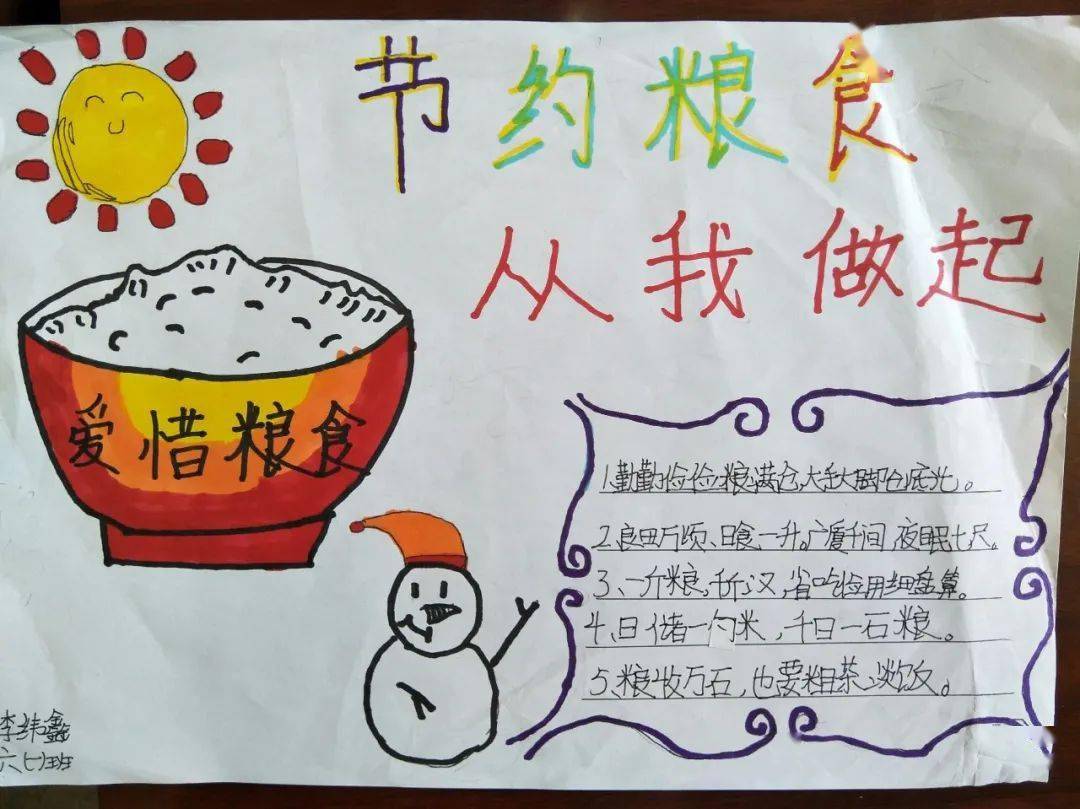 节约粮食
从我做起
爱惜粮食
1.勤勤俭俭粮满仓,大手大脚仓底光。
2.良田万顷、日食一升。广厦千间,夜眠七尺。
3、一斤粮,千斤汉,省吃俭用细盘算。
4、日储一勺米,千日一石粮。
5、粮收万石,也要粗茶淡饭。
李纬鑫
六(一)班